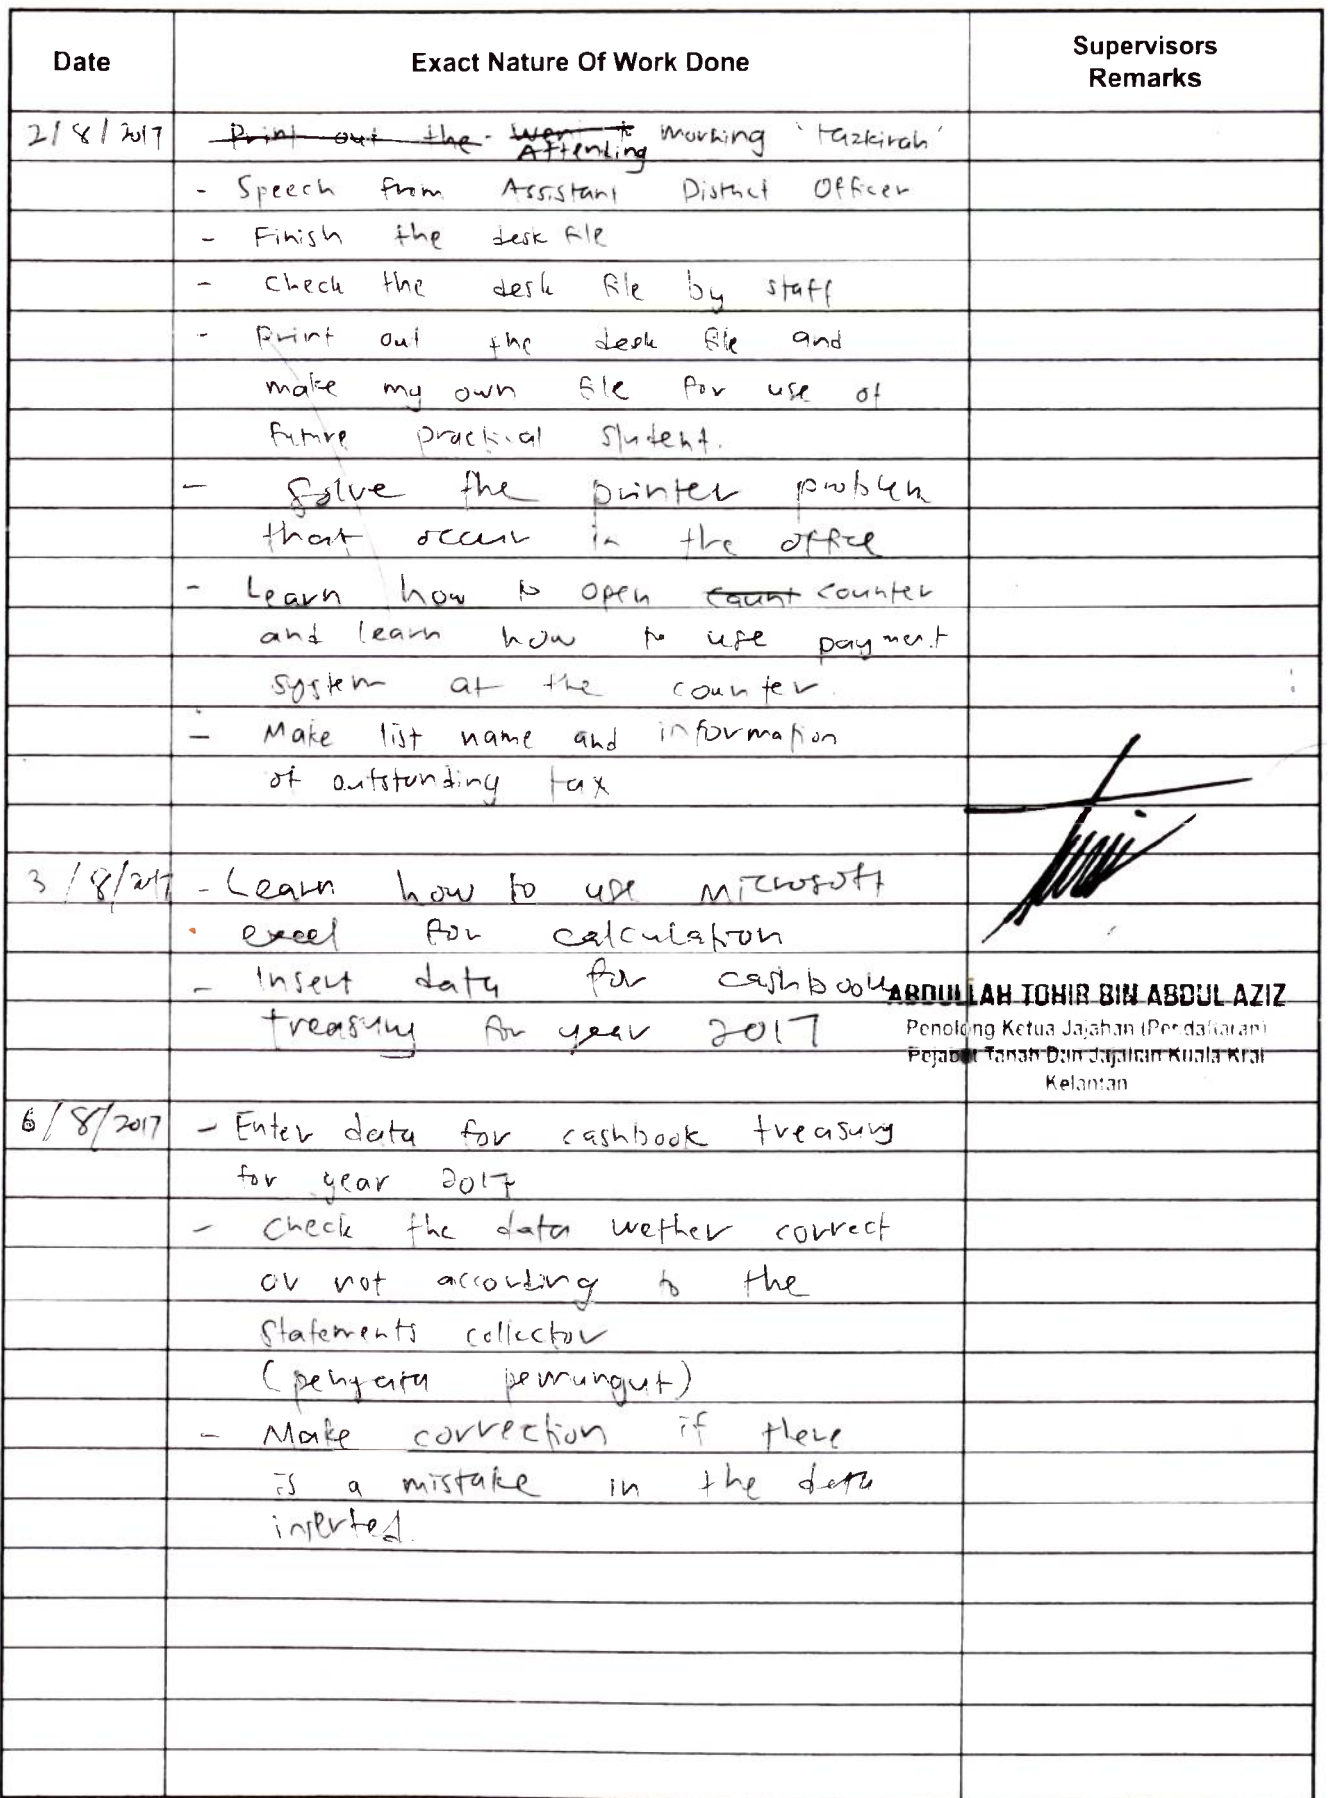 Date Exact Nature Of Work Done Supervisors
Remarks
2/8/2017 Print out the - Went to Attending morning 'tazkirah'
- Speech from Assistant District Officer
- Finish the desk file
- Check the desk file by staff
- Print out the desk file and
make my own file for use of
future practical student.
- Solve the printer problem
that occur in the office
- Learn how to open count counter
and learn how to use payment
system at the counter.
- Make list name and information
of outstanding tax
3/8/2017 - Learn how to use Microsoft
excel for calculation
- Insert data for cashbook
treasury for year 2017
ABDULLAH TOHIR BIN ABDUL AZIZ
Penolong Ketua Jajahan (Pendaftaran)
Pejabat Tanah Dan Jajahan Kuala Krai
Kelantan
6/8/2017 - Enter data for cashbook treasury
for year 2017
- Check the data wether correct
or not according to the
statements collector
(penyata pemungut)
- Make correction if there
is a mistake in the data
inserted.